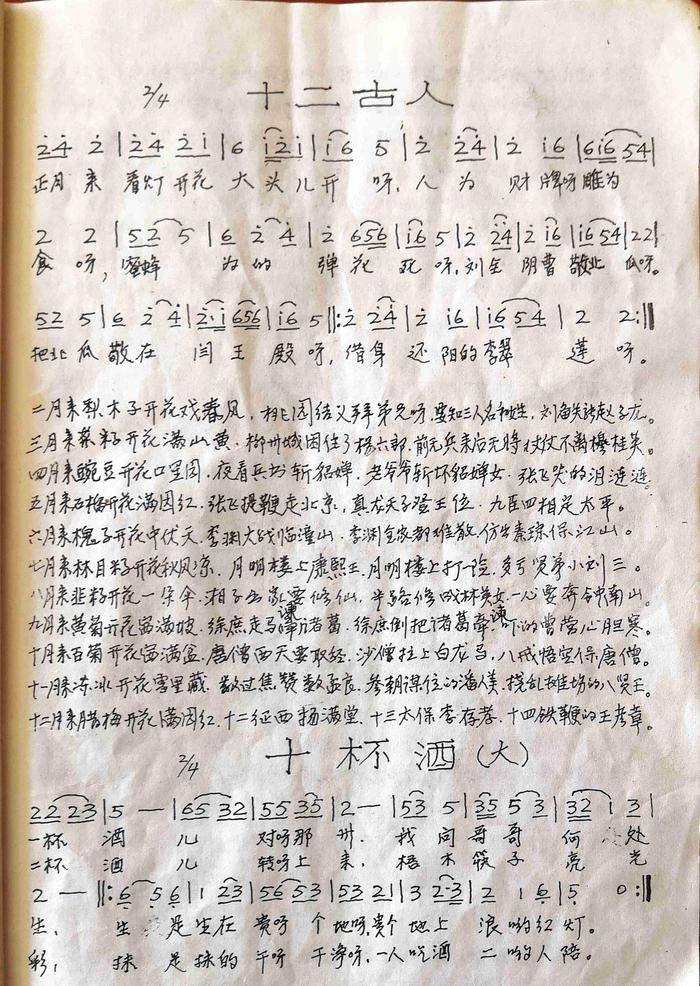 2/4 十二古人
2̇4̇ 2̇ | 2̇4̇ 2̇1̇ | 6 1̇2̇1̇ | 1̇6 5 | 2̇ 2̇4̇ | 2̇ 1̇6 | 61̇6 54 |
正月 来 看灯 开花 大 头 儿 开 呀, 人 为 财 牌呀 雕为
2 2 | 52 5 | 6 2̇ 4̇ | 2̇ 656 | 1̇6 5 | 2̇ 2̇4̇ | 2̇ 1̇6 | 1̇6 54 | 22 |
食 呀, 蜜蜂 为 的 弹 花 死 呀, 刘全 阴曹 敬北 瓜呀。
52 5 | 6 2̇ 4̇ | 2̇·1̇ 656 | 1̇6 5 ‖: 2̇ 2̇4̇ | 2̇ 1̇6 | 1̇6 54 | 2 2 :‖
把北 瓜 敬 在 闫 王 殿 呀, 借身 还 阳的 李翠 莲 呀。
二月来梨木子开花戏春风, 桃园结义拜弟兄呀, 要知三人名和姓, 刘 赵子龙。
三月来菜籽开花满山黄, 柳州城困住了杨六郎, 前无兵来后无将, 仗仗不离穆桂英。
四月来豌豆开花口里圆, 夜看兵书斩貂蝉, 老爷爷斩坏貂蝉女, 张飞哭的泪涟涟。
五月来石梅开花满园红, 张飞提鞭走北京, 真龙天子登王位, 九臣四相定太平。
六月来槐子开花中伏天, 李渊大战临潼山, 李渊全家都难散, 仿 秦琼保江山。
七月来林目籽开花秋风凉, 月明楼上康熙王, 月明楼上打一险, 多亏贤弟小刘三。
八月来韭籽开花一朵伞, 湘子出家要修仙, 半路修 林英女, 一心要奔令中南山。
九月来黄菊开花富满坡, 徐庶走马谏诸葛, 徐庶倒把诸葛谏, 吓的曹营心胆寒。
十月来百菊开花富满盆, 唐僧西天要取经, 沙僧拉上白龙马, 八戒悟空保唐僧。
十一月来冻冰开花雪里藏, 数过焦赞数孟良, 参朝谋位的潘人美, 搅乱 场的八贤王。
十二月来腊梅开花满园红, 十二征西扬满堂, 十三太保李存孝, 十四铁鞭的王彦章。
2/4 十杯酒 (大)
22 23 | 5 — | 65 32 | 55 35 | 2 — | 53 5 | 35 53 | 32 1 3 |
一杯 酒 儿 对呀那 州, 我 问 哥哥 何 处
二杯 酒 儿 转呀上 来, 梧 木 筷子 亮 光
2 — ‖: 6̣ 5̣6̣ | 1 23 | 56 53 | 53 21 | 3 2·3 | 2 1 6̣ | 5̣ 0 :‖
生, 生 是 生在 贵呀 个 地呀, 贵个 地上 浪 哟 红 灯。
彩, 抹 是 抹的 干呀 干净呀, 一人 吃酒 二 哟 人 陪。